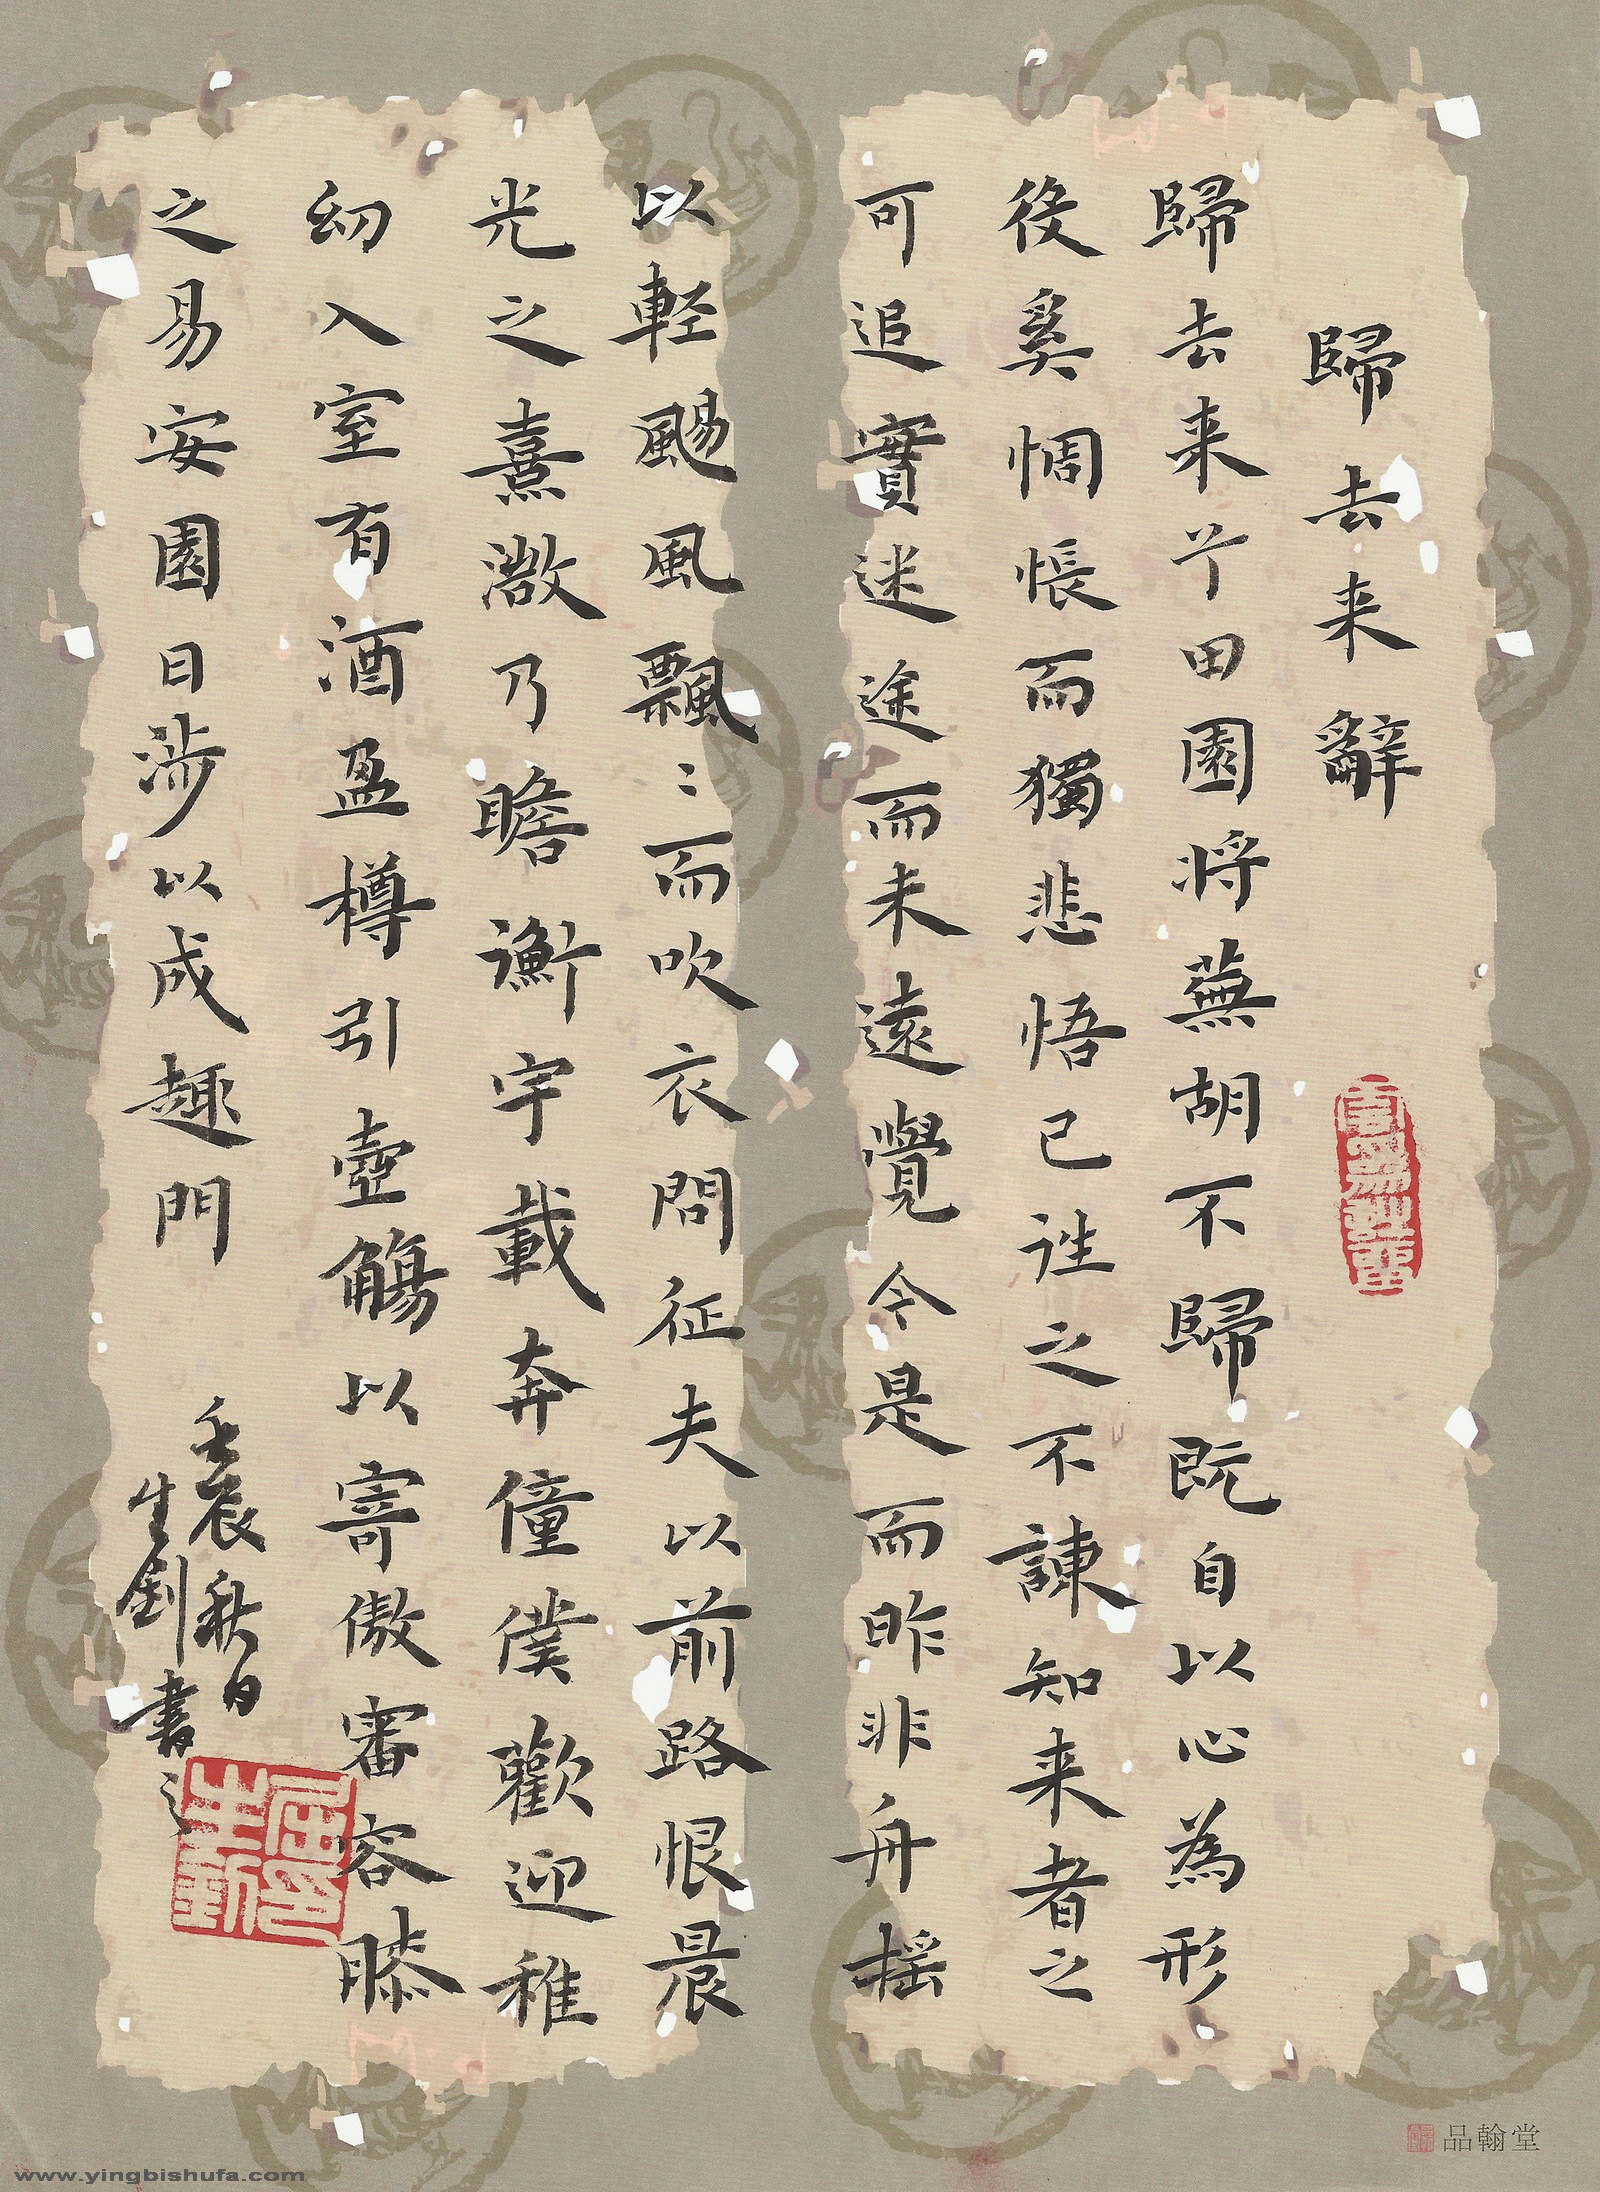 歸去来辭
歸去来兮田園将蕪胡不歸既自以心為形
役奚惆悵而獨悲悟已往之不諫知来者之
可追實迷途而未遠覺今是而昨非舟摇
以軽颺風飄〻而吹衣問征夫以前路恨晨
光之熹微乃瞻衡宇載奔僮僕歡迎稚
幼入室有酒盈樽引壺觴以寄傲審容膝
之易安園日涉以成趣門
壬辰秋日
生剑書之
品翰堂
www.yingbishufa.com